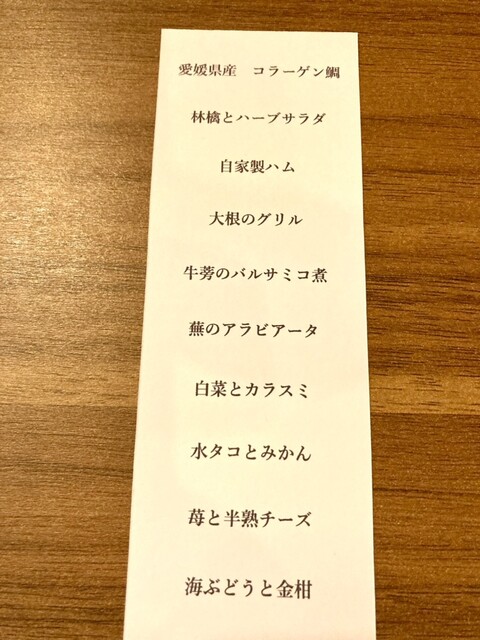 愛媛県産　コラーゲン鯛
林檎とハーブサラダ
自家製ハム
大根のグリル
牛蒡のバルサミコ煮
蕪のアラビアータ
白菜とカラスミ
水タコとみかん
苺と半熟チーズ
海ぶどうと金柑